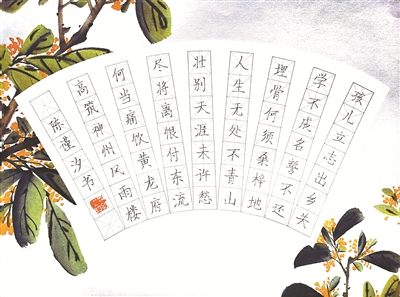 孩儿立志出乡关
学不成名誓不还
埋骨何须桑梓地
人生无处不青山
壮别天涯未许愁
尽将离恨付东流
何当痛饮黄龙府
高筑神州风雨楼
陈汐书